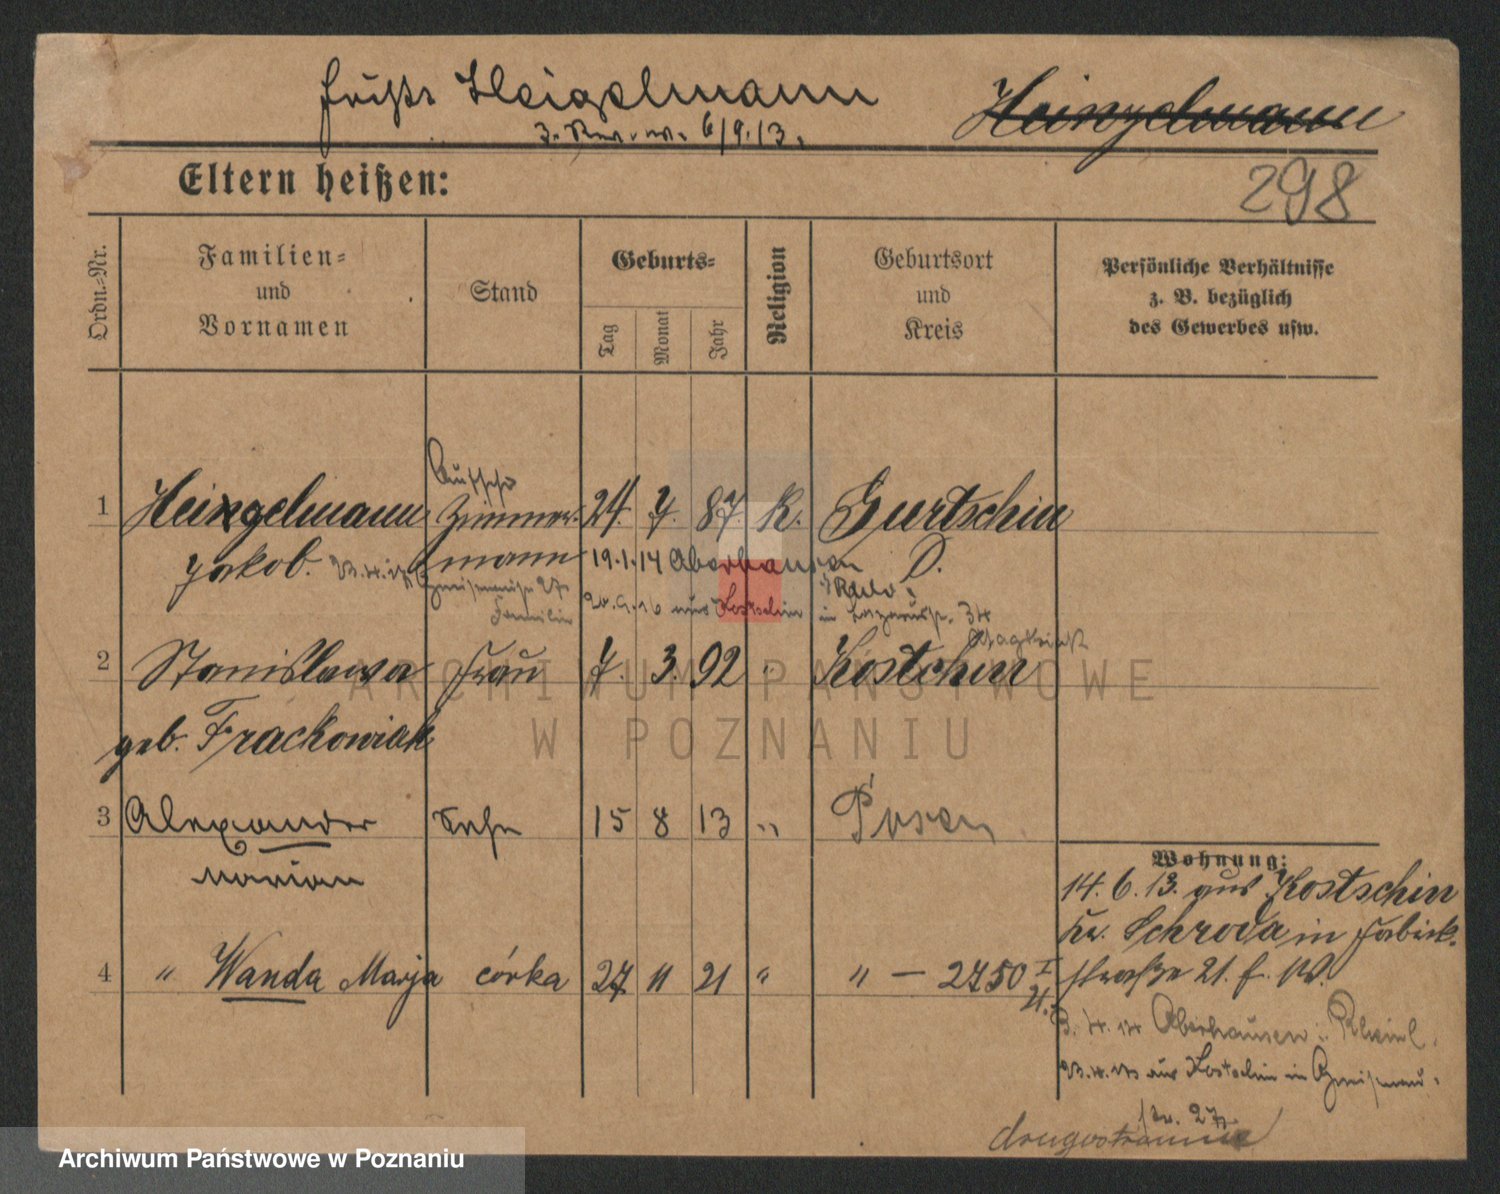 heißt Heigelmann Heinzelmann
6/9.13.
Eltern heißen:
298
Ordn.-Nr.
Familien-
und
Vornamen
Stand
Geburts-
Tag
Monat
Jahr
Religion
Geburtsort
und
Kreis
Persönliche Verhältnisse
z. B. bezüglich
des Gewerbes usw.
1 Heingelmann Zimmer- 24. 7. 87. K. Gurtschin
Jakob. mann 19.1.14 Oberhausen O.
aus Kostschin in
2 Stanislawa Frau 7. 3. 92 " Kostchin
geb. Frackowiak
3 Alexander Sohn 15 8 13 " Posen
Marian
4 " Wanda Marja córka 27 11 21 " " — 2750 I
21.
Wohnung:
14. 6. 13. aus Kostschin
Kr. Schroda in Fabrik-
straße 21. f. W.
Oberhausen Rheinl.
aus Kostschin in
27
drugostronnie
ARCHIWUM PAŃSTWOWE
W POZNANIU
Archiwum Państwowe w Poznaniu